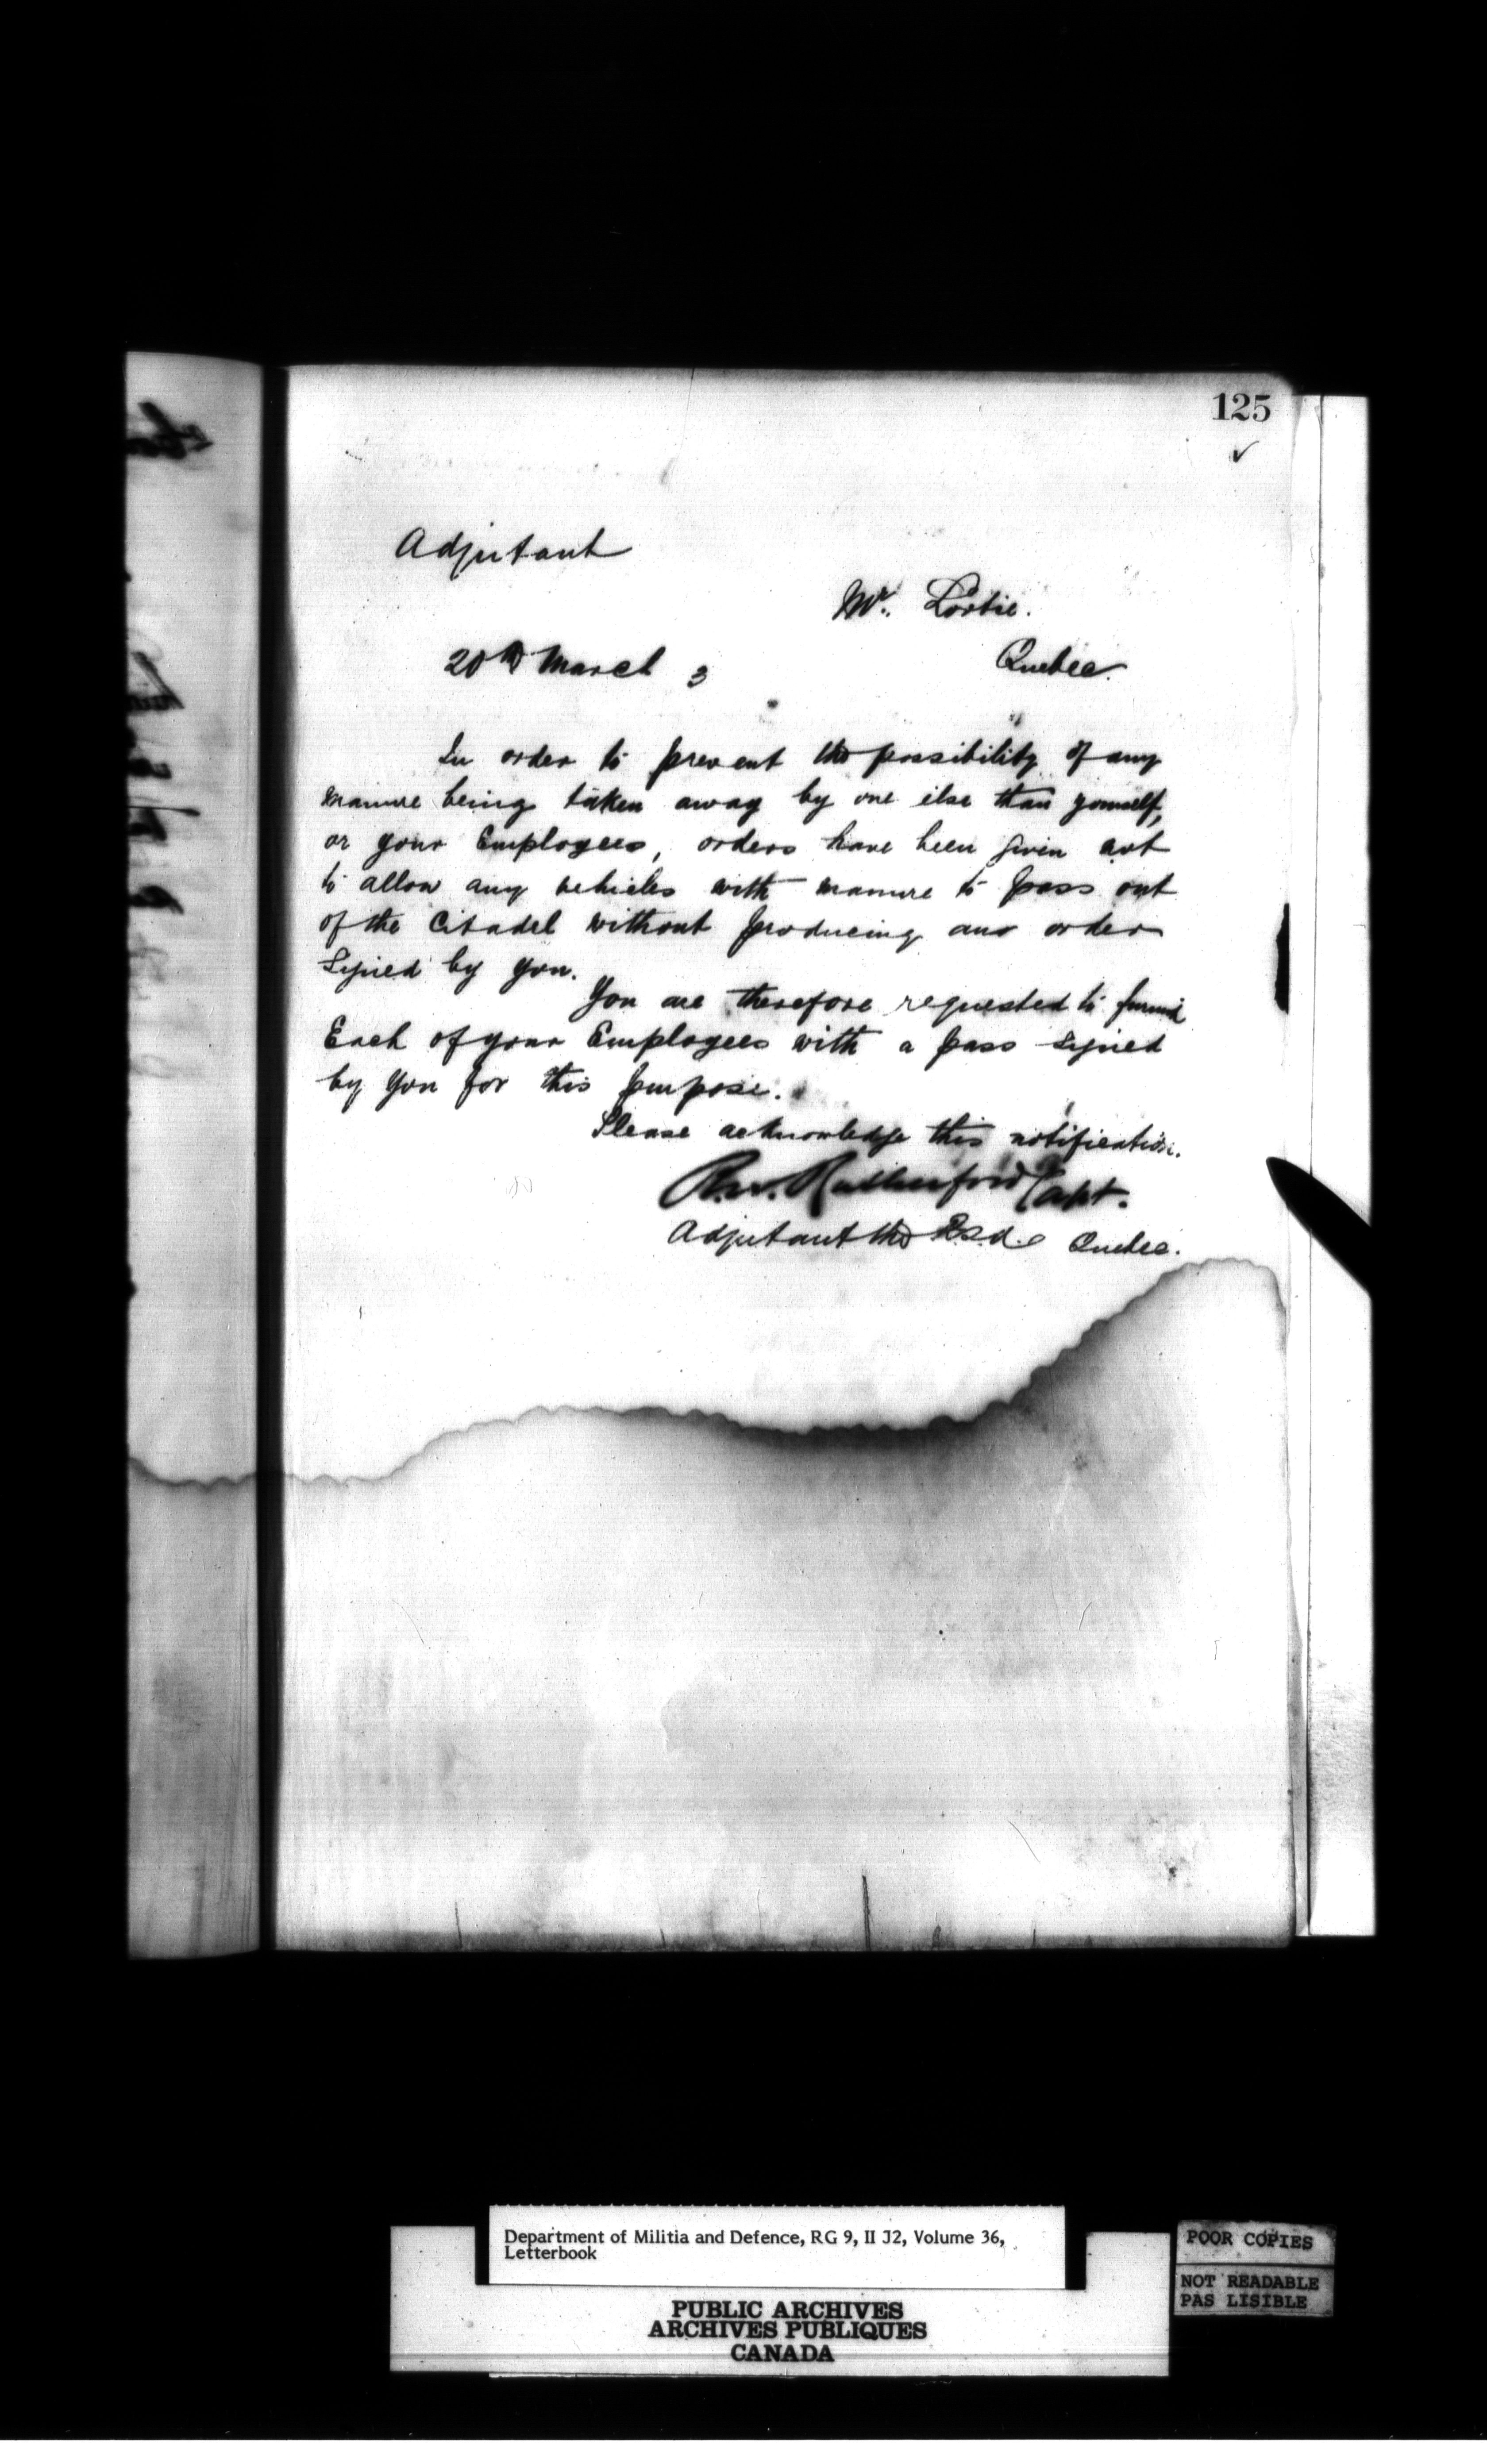 125
Adjutant
Mr. Lortie.
20th March 3
Quebec.
In order to prevent the possibility of any
manure being taken away by one else than yourself,
or your Employees, orders have been given not
to allow any vehicles with manure to pass out
of the Citadel without producing an order
signed by you.
You are therefore requested to furnish
Each of your Employees with a pass signed
by you for this purpose.
Please acknowledge this notification.
Rutherford Capt.
Adjutant the Quebec.
Department of Militia and Defence, RG 9, II J2, Volume 36,
Letterbook
POOR COPIES
NOT READABLE
PAS LISIBLE
PUBLIC ARCHIVES
ARCHIVES PUBLIQUES
CANADA